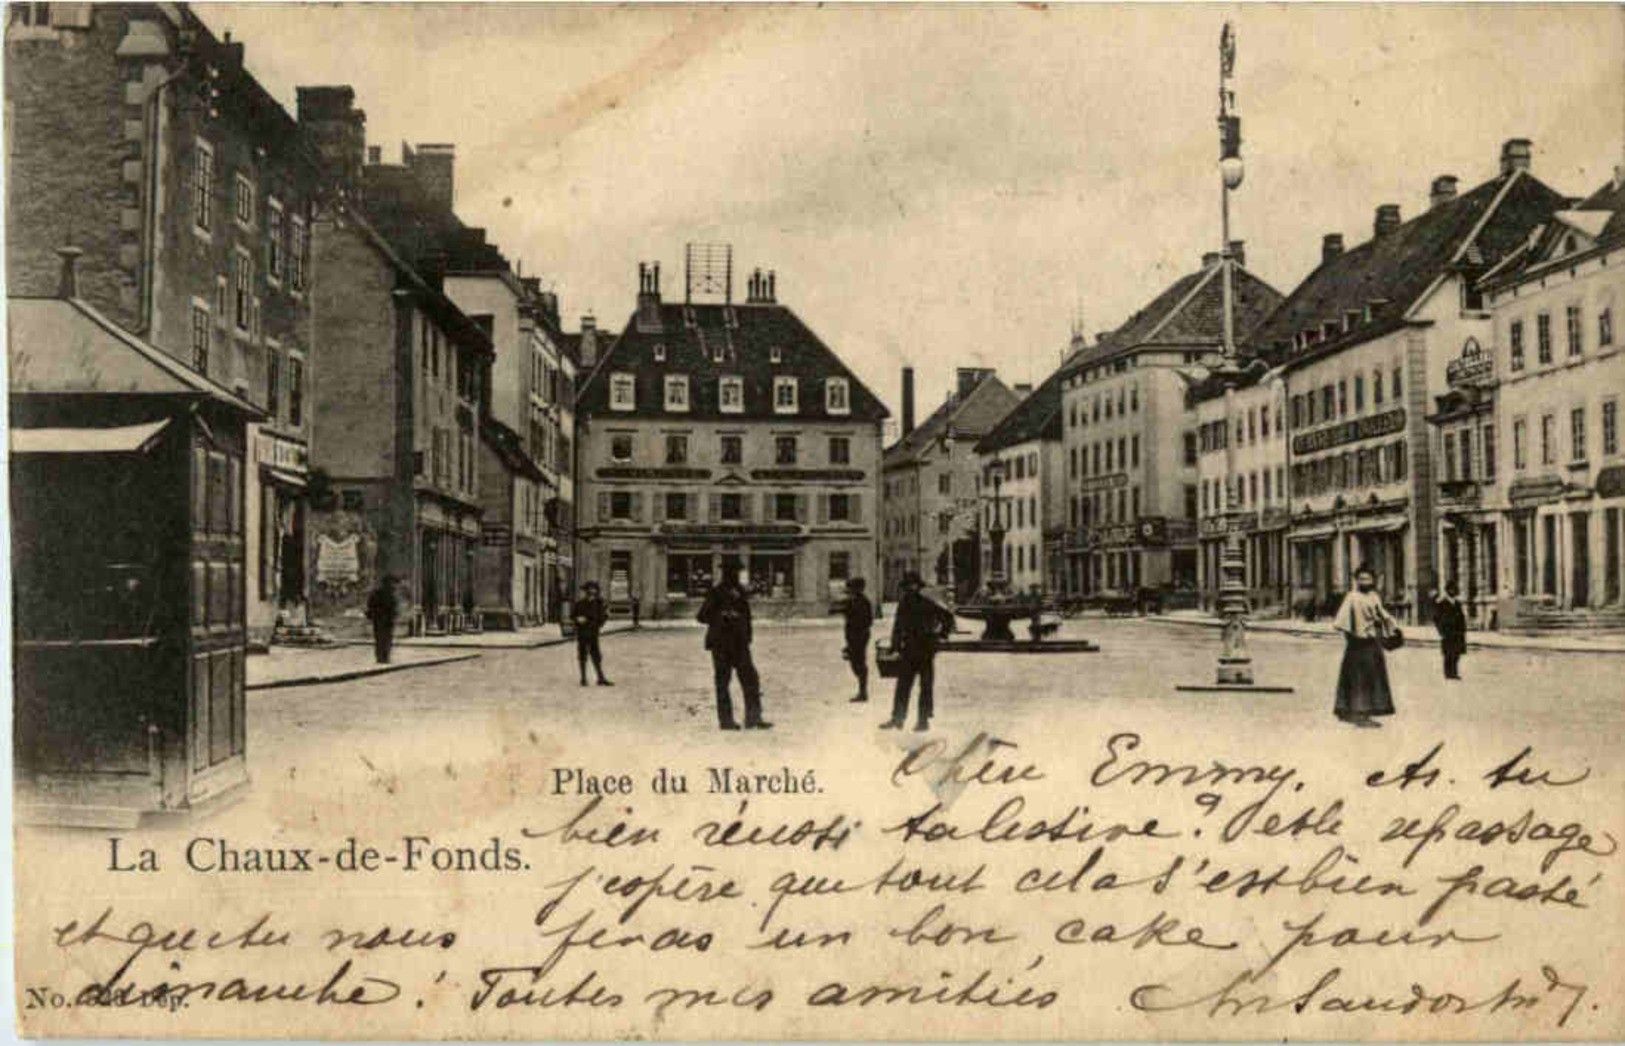 Place du Marché.
La Chaux-de-Fonds.
Chère Emmy, As-tu
bien réussi ta lessive? et le repassage
j'espère que tout cela s'est bien passé
et que tu nous feras un bon cake pour
dimanche! Toutes mes amitiés
No. Dép.